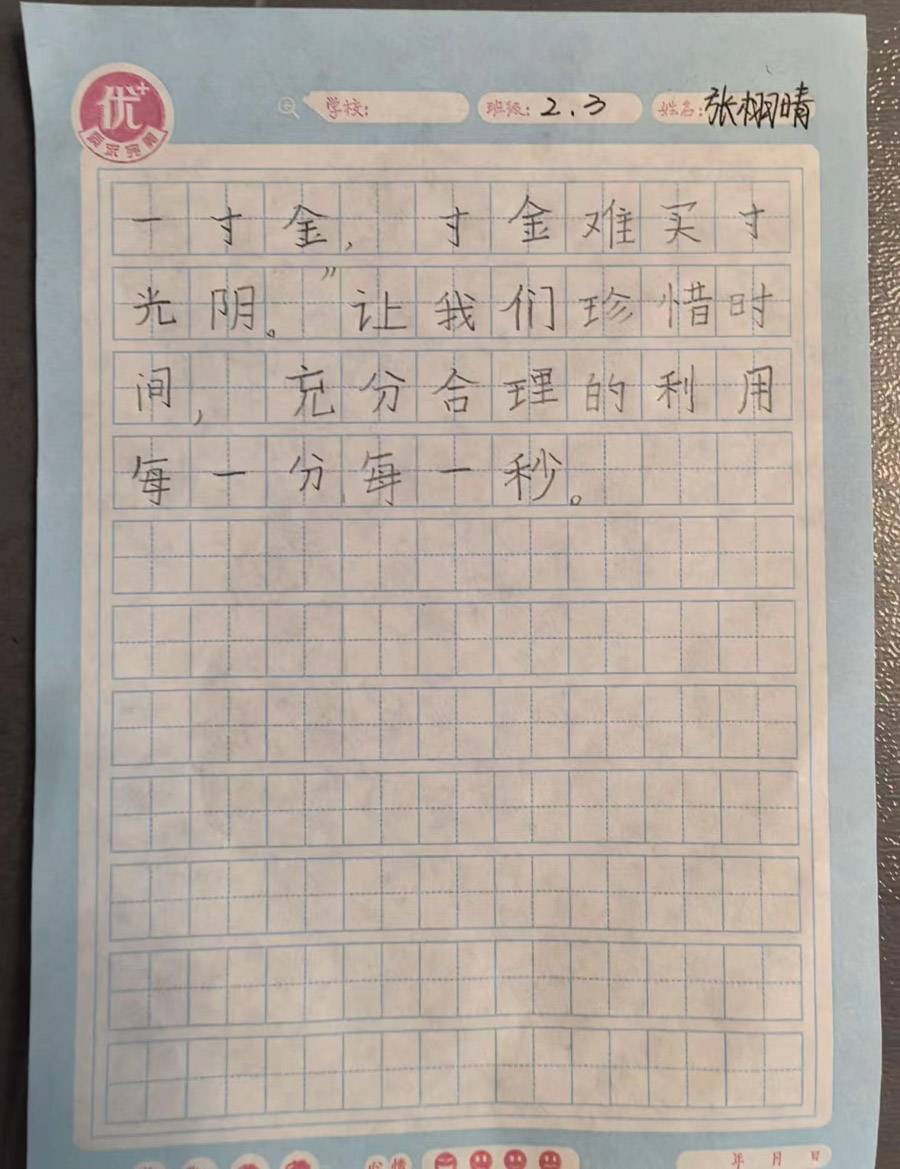 优+
学校: 班级: 2.3 姓名: 张栩晴
一寸金,寸金难买寸
光阴。”让我们珍惜时
间,充分合理的利用
每一分每一秒。
心情
年 月 日